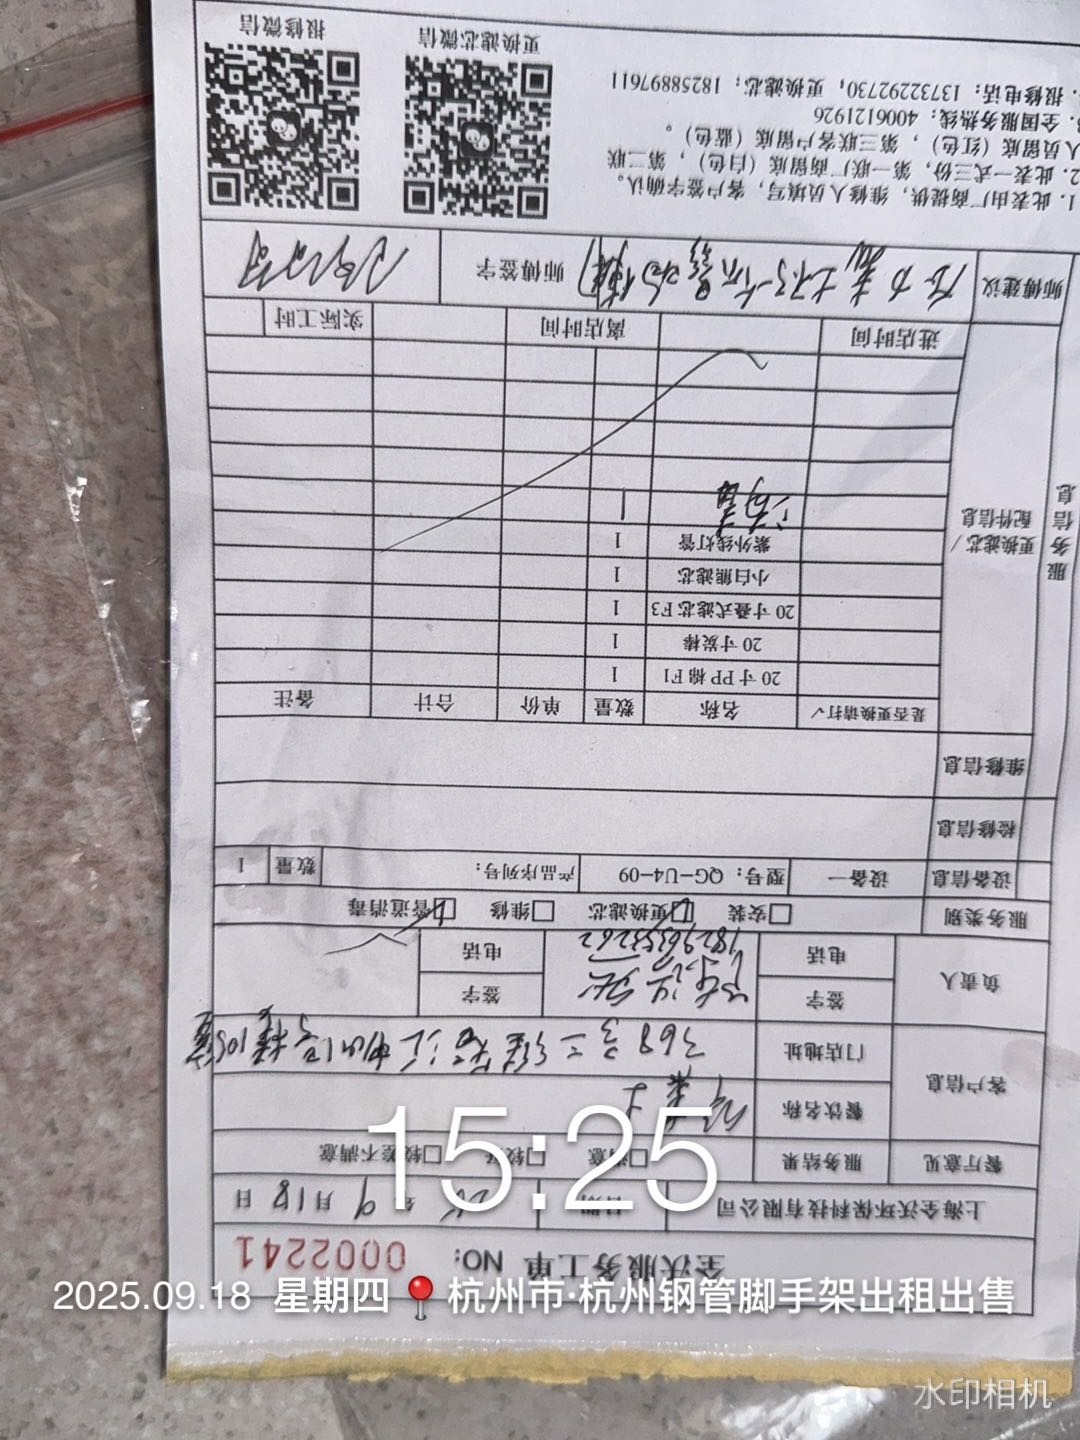 全沃服务工单 NO: 0002241
上海全沃环保科技有限公司 日期 25年9月18日
餐厅意见 服务结果 □满意 □较好 □较差不满意
客户信息 餐饮名称
门店地址 368号
负责人 签字 签字
电话 18296353262 电话
服务类别 □安装 □更换滤芯 □维修 □管道消毒
设备信息 设备一 型号：QG-U4-09 产品序列号： 数量 1
检修信息
维修信息
服务信息
更换滤芯/配件信息
是否更换请打√ 名称 数量 单价 合计 备注
20寸PP棉F1 1
20寸炭棒 1
20寸叠式滤芯F3 1
小白熊滤芯 1
紫外线灯管 1
消毒 1
进店时间 离店时间 实际工时
师傅建议 师傅签字
1. 此表由厂商提供，维修人员填写，客户签字确认。
2. 此表一式三份，第一联厂商留底（白色），第二联
人员留底（红色），第三联客户留底（蓝色）。
全国服务热线：4006121926
报修电话：13732292730，更换滤芯：18258897611
更换滤芯微信
报修微信
15:25
2025.09.18 星期四 杭州市·杭州钢管脚手架出租出售
水印相机